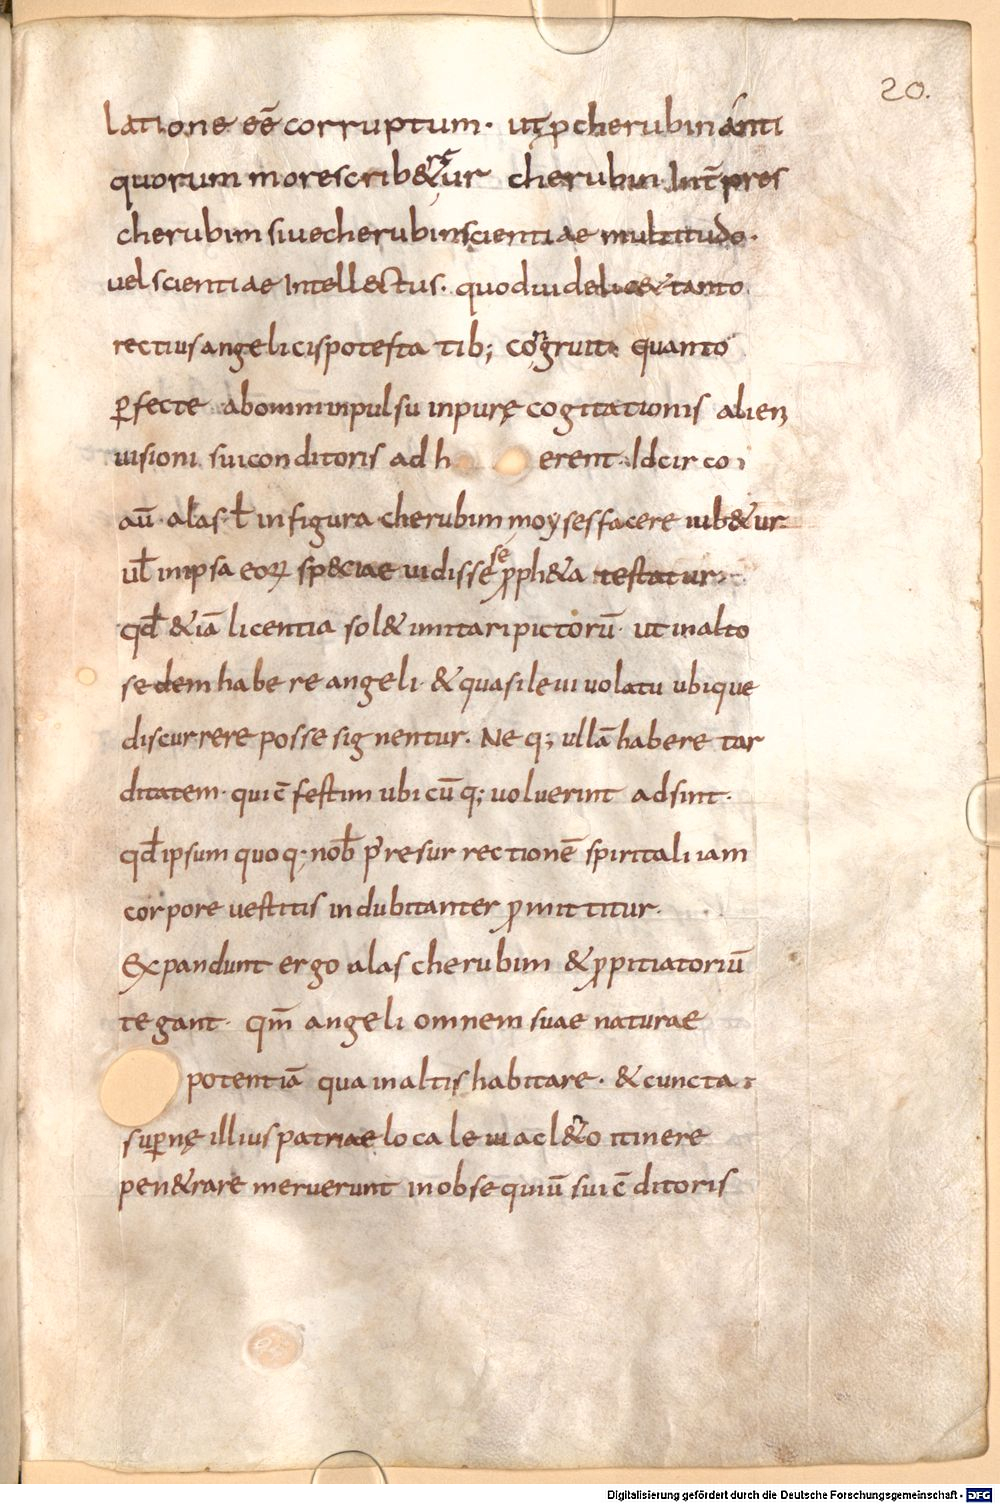 20.
latione eē corruptum· ut ꝓ cherubin anti
quorum more scrib&ur cherubin Int̄pres
cherubim siue cherubim scientiae multitudo·
uel scientiae Intellectus· quod uidelic& tanto
rectius angelicis potesta tib; congruit quanto
ꝑfecte ab omni inpulsu inpurę cogitationis alien
uisioni sui conditoris ad h erent· Idcirco
aū· alas· ł in figura cherubim moyses facere iub&ur
uł in ipsa eoꝝ sp&ciae uidisse se ꝓph&a testatur
qđ &iā licentia sol& imitari pictorū· ut in alto
sedem habere angeli· & quasi leui uolatu ubique
discurrere posse signentur· Neq; ullā habere tar
ditatem· qui c̄festim ubicūq; uoluerint adsint·
qđ ipsum quoq; nob̄ p̄ resurrectionē spiritali iam
corpore uestitis indubitanter ꝓmittitur·
Expandunt ergo alas cherubim & ꝓpitiatoriū
tegant· qm̄ angeli omnem suae naturae
potentiā qua in altis habitare· & cuncta
suꝑnę illius patriae loca leui acl&o itinere
pen&rare meruerunt in obsequiū sui c̄ditoris
Digitalisierung gefördert durch die Deutsche Forschungsgemeinschaft - DFG